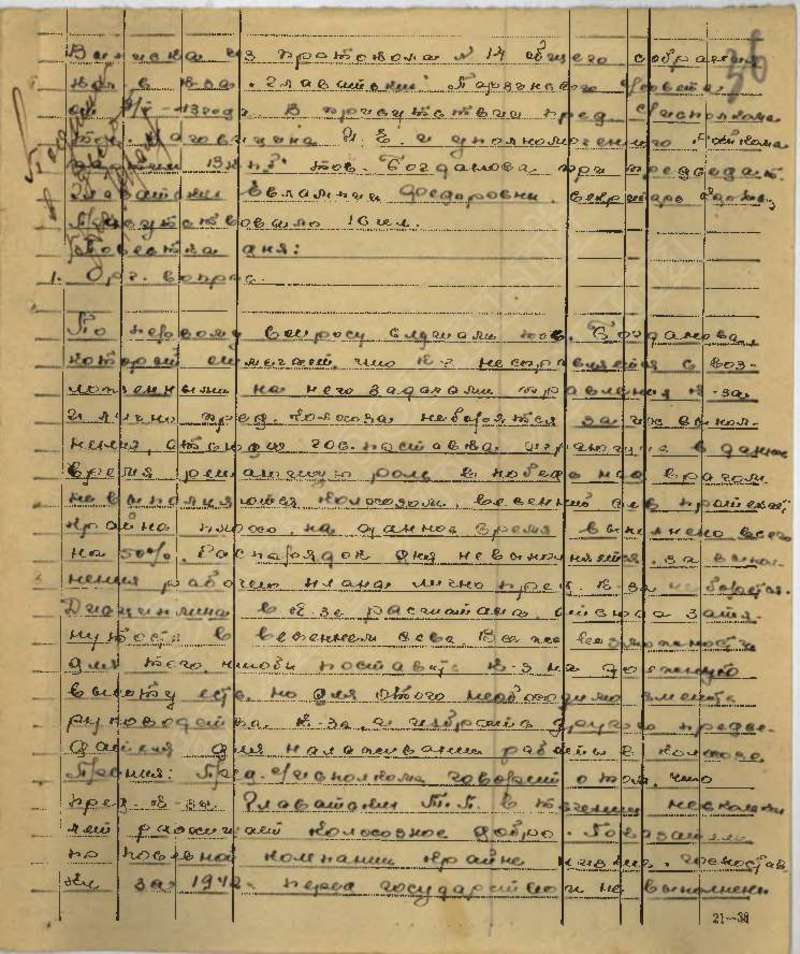 36
Выписка из протокола N 14 общего собрания
к-за
от 4/V-43 года. В присутствии пред. с/исполкома
тов. И. Е. и уполномоченного Райкома
ВКП тов. Богданова при председат.
Главатских Федоровны. секретаре
Присутствовало 16 чел.
Повестка дня:
1. Орг. вопрос.
По первому вопросу слушали тов. Богданова
который отмечает, что к-з не справляется с воз-
ложенными на него задачами правления к-за
и лично пред. колхоза не борятся за их выпол-
нения, отсюда гос. поставки играющие в данное
время решающую роль в победе над врагом
не выполняются колхозом, весенний сев проходит
крайне плохо, на данное время выполнено всего
на 50%. Распорядок дня не выполняется, за выпол-
нения рабочего плана лично пред. к-за не борется.
Дисциплина в к-зе расшатана, отсюда затя-
нутость в весеннем севе. Все же возможности
для того, чтобы поставить к-з на должную
высоту есть, но для этого необходимо сменить
руководства к-за, и избрать другого предсе-
дателя для налаживания работы в колхозе
Прения: Пред. с/исполкома говорит о том, что
пред. к-за Главатских П. П. в течении несколько
лет разжигает колхозное добро. Показатели
по посевной компании крайне низкие, госпостав
ки за 1942 г. перед государством не выполнены
21-38